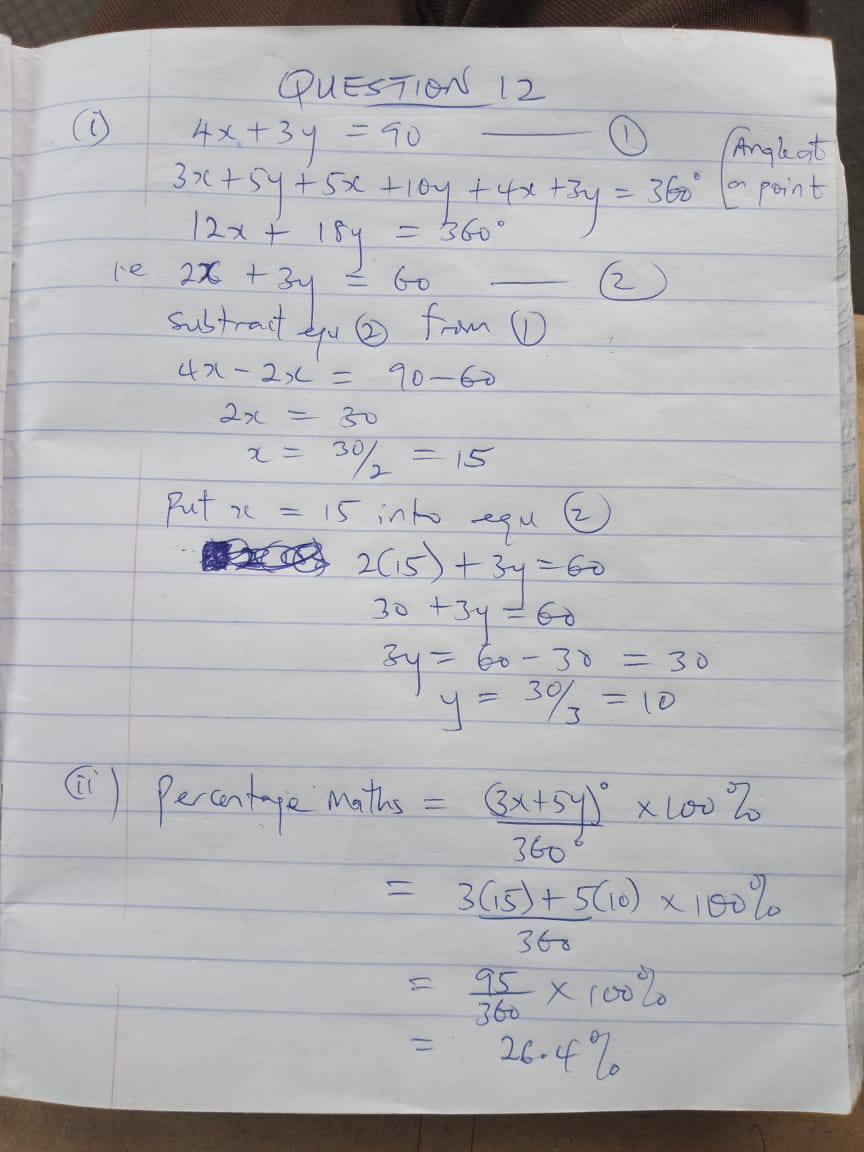 QUESTION 12
(i) 4x + 3y = 90 —— ①
3x + 5y + 5x + 10y + 4x + 3y = 360° [Angle at a point
12x + 18y = 360°
i.e 2x + 3y = 60 —— ②
subtract equ ② from ①
4x - 2x = 90 - 60
2x = 30
x = 30/2 = 15
Put x = 15 into equ ②
2(15) + 3y = 60
30 + 3y = 60
3y = 60 - 30 = 30
y = 30/3 = 10
(ii) Percentage Maths = (3x+5y)°/360° × 100%
= 3(15) + 5(10)/360 × 100%
= 95/360 × 100%
= 26.4%